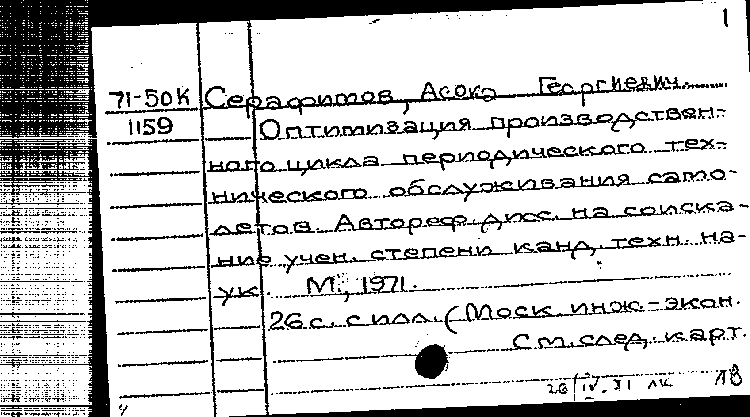 1
71-50К Серафимов, Асока Георгиевич.
1159 Оптимизация производствен-
ного цикла периодического тех-
нического обслуживания само-
летов. Автореф. дисс. на соиска-
ние учен. степени канд. техн. на-
ук. М., 1971.
26 с. с илл. (Моск. инж.-экон.
См. след. карт.
28/IV.71 ЛК